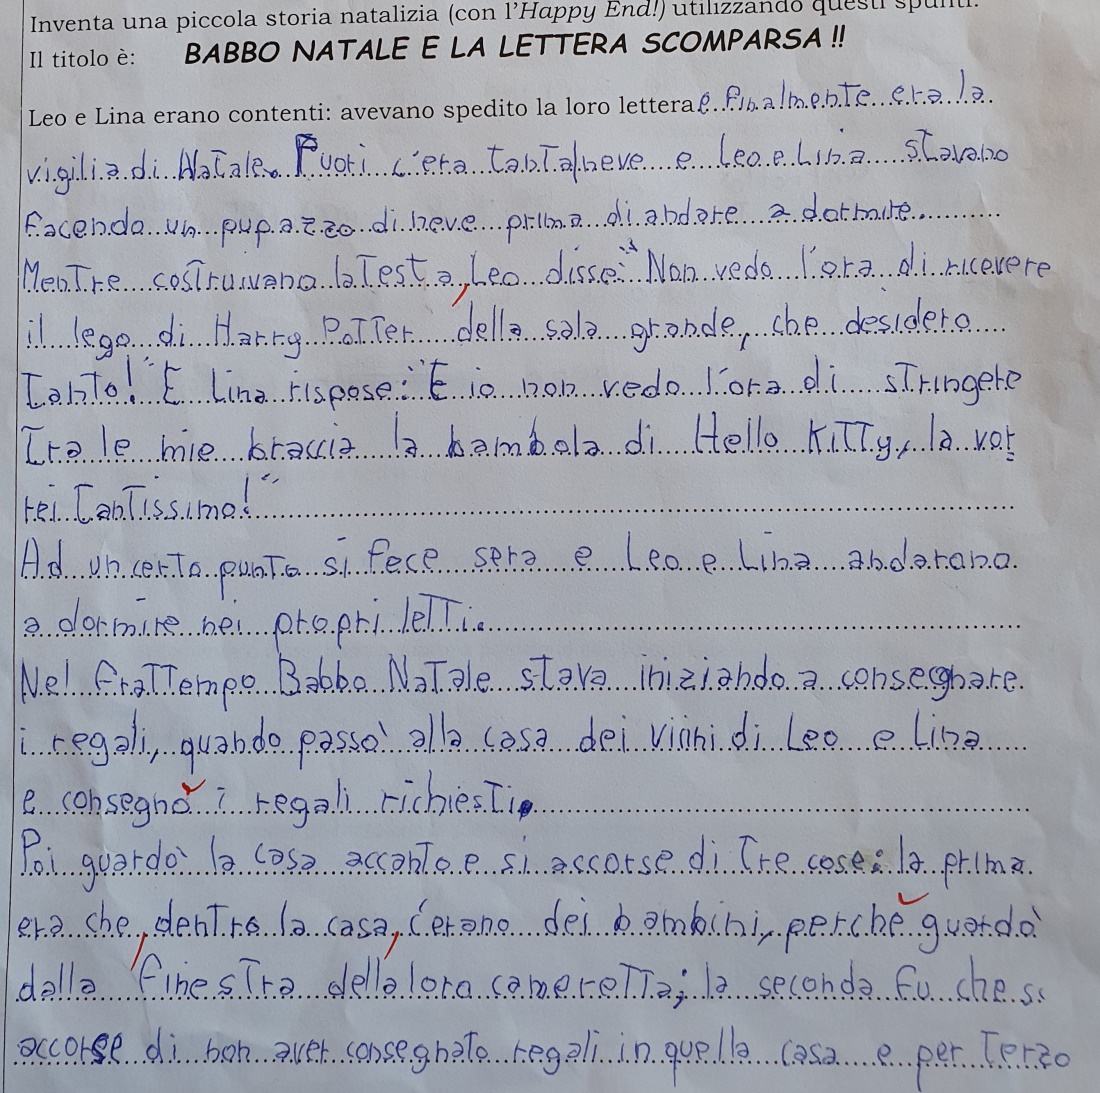 Inventa una piccola storia natalizia (con l'Happy End!) utilizzando questi spunti:
Il titolo è: BABBO NATALE E LA LETTERA SCOMPARSA !!
Leo e Lina erano contenti: avevano spedito la loro lettera e finalmente era la
vigilia di Natale. Fuori c'era tanta neve e Leo e Lina stavano
facendo un pupazzo di neve prima di andare a dormire.
Mentre costruivano la testa, Leo disse: "Non vedo l'ora di ricevere
il lego di Harry Potter della sala grande, che desidero
tanto!" E Lina rispose: "E io non vedo l'ora di stringere
tra le mie braccia la bambola di Hello Kitty, la vor
rei tantissimo!"
Ad un certo punto si fece sera e Leo e Lina andarono
a dormire nei propri letti.
Nel frattempo Babbo Natale stava iniziando a consegnare
i regali, quando passò alla casa dei vicini di Leo e Lina
e consegnò i regali richiesti.
Poi guardò la casa accanto e si accorse di tre cose: la prima
era che, dentro la casa, c'erano dei bambini, perché guardò
dalla finestra della loro cameretta; la seconda fu che si
accorse di non aver consegnato regali in quella casa e per terzo